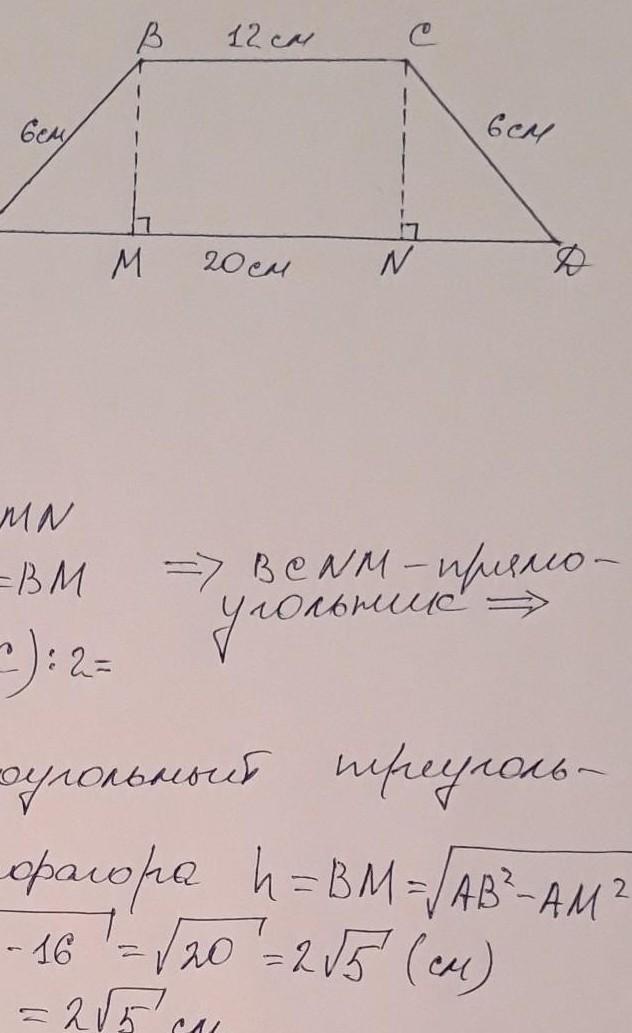 B 12 см C
6см 6см
M 20см N D
MN
=BM ⇒ BCNM – прямо-
угольник ⇒
C):2=
оугольный треуголь-
фагора h = BM = √AB² - AM²
- 16 = √20 = 2√5 (см)
= 2√5 см